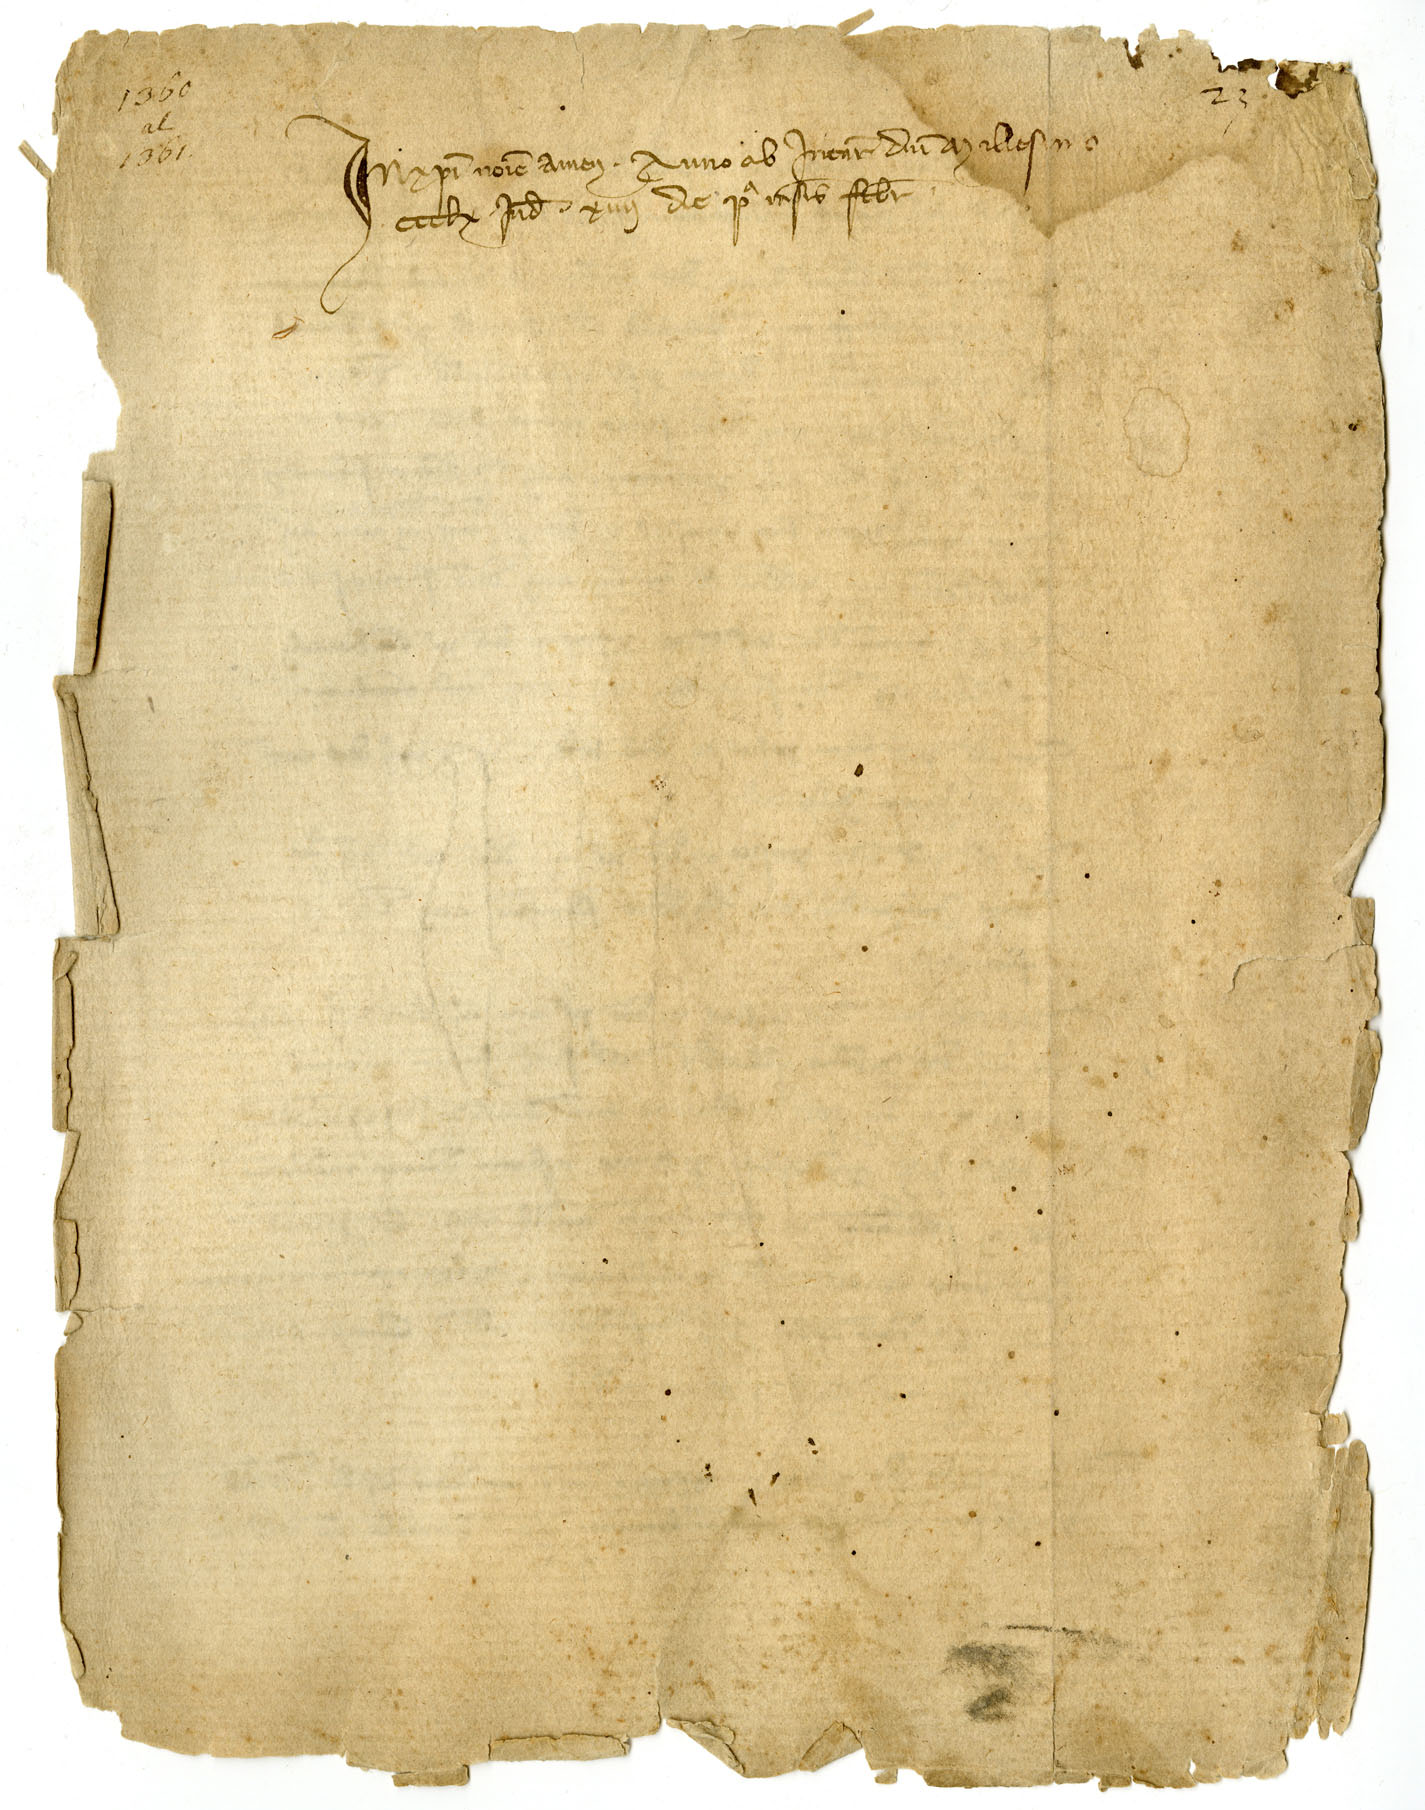 1360
al
1361.
23
In xpi noie amen. Anno ab Incar dni Millesimo
ccclx Ind. xiiij de p^a msis